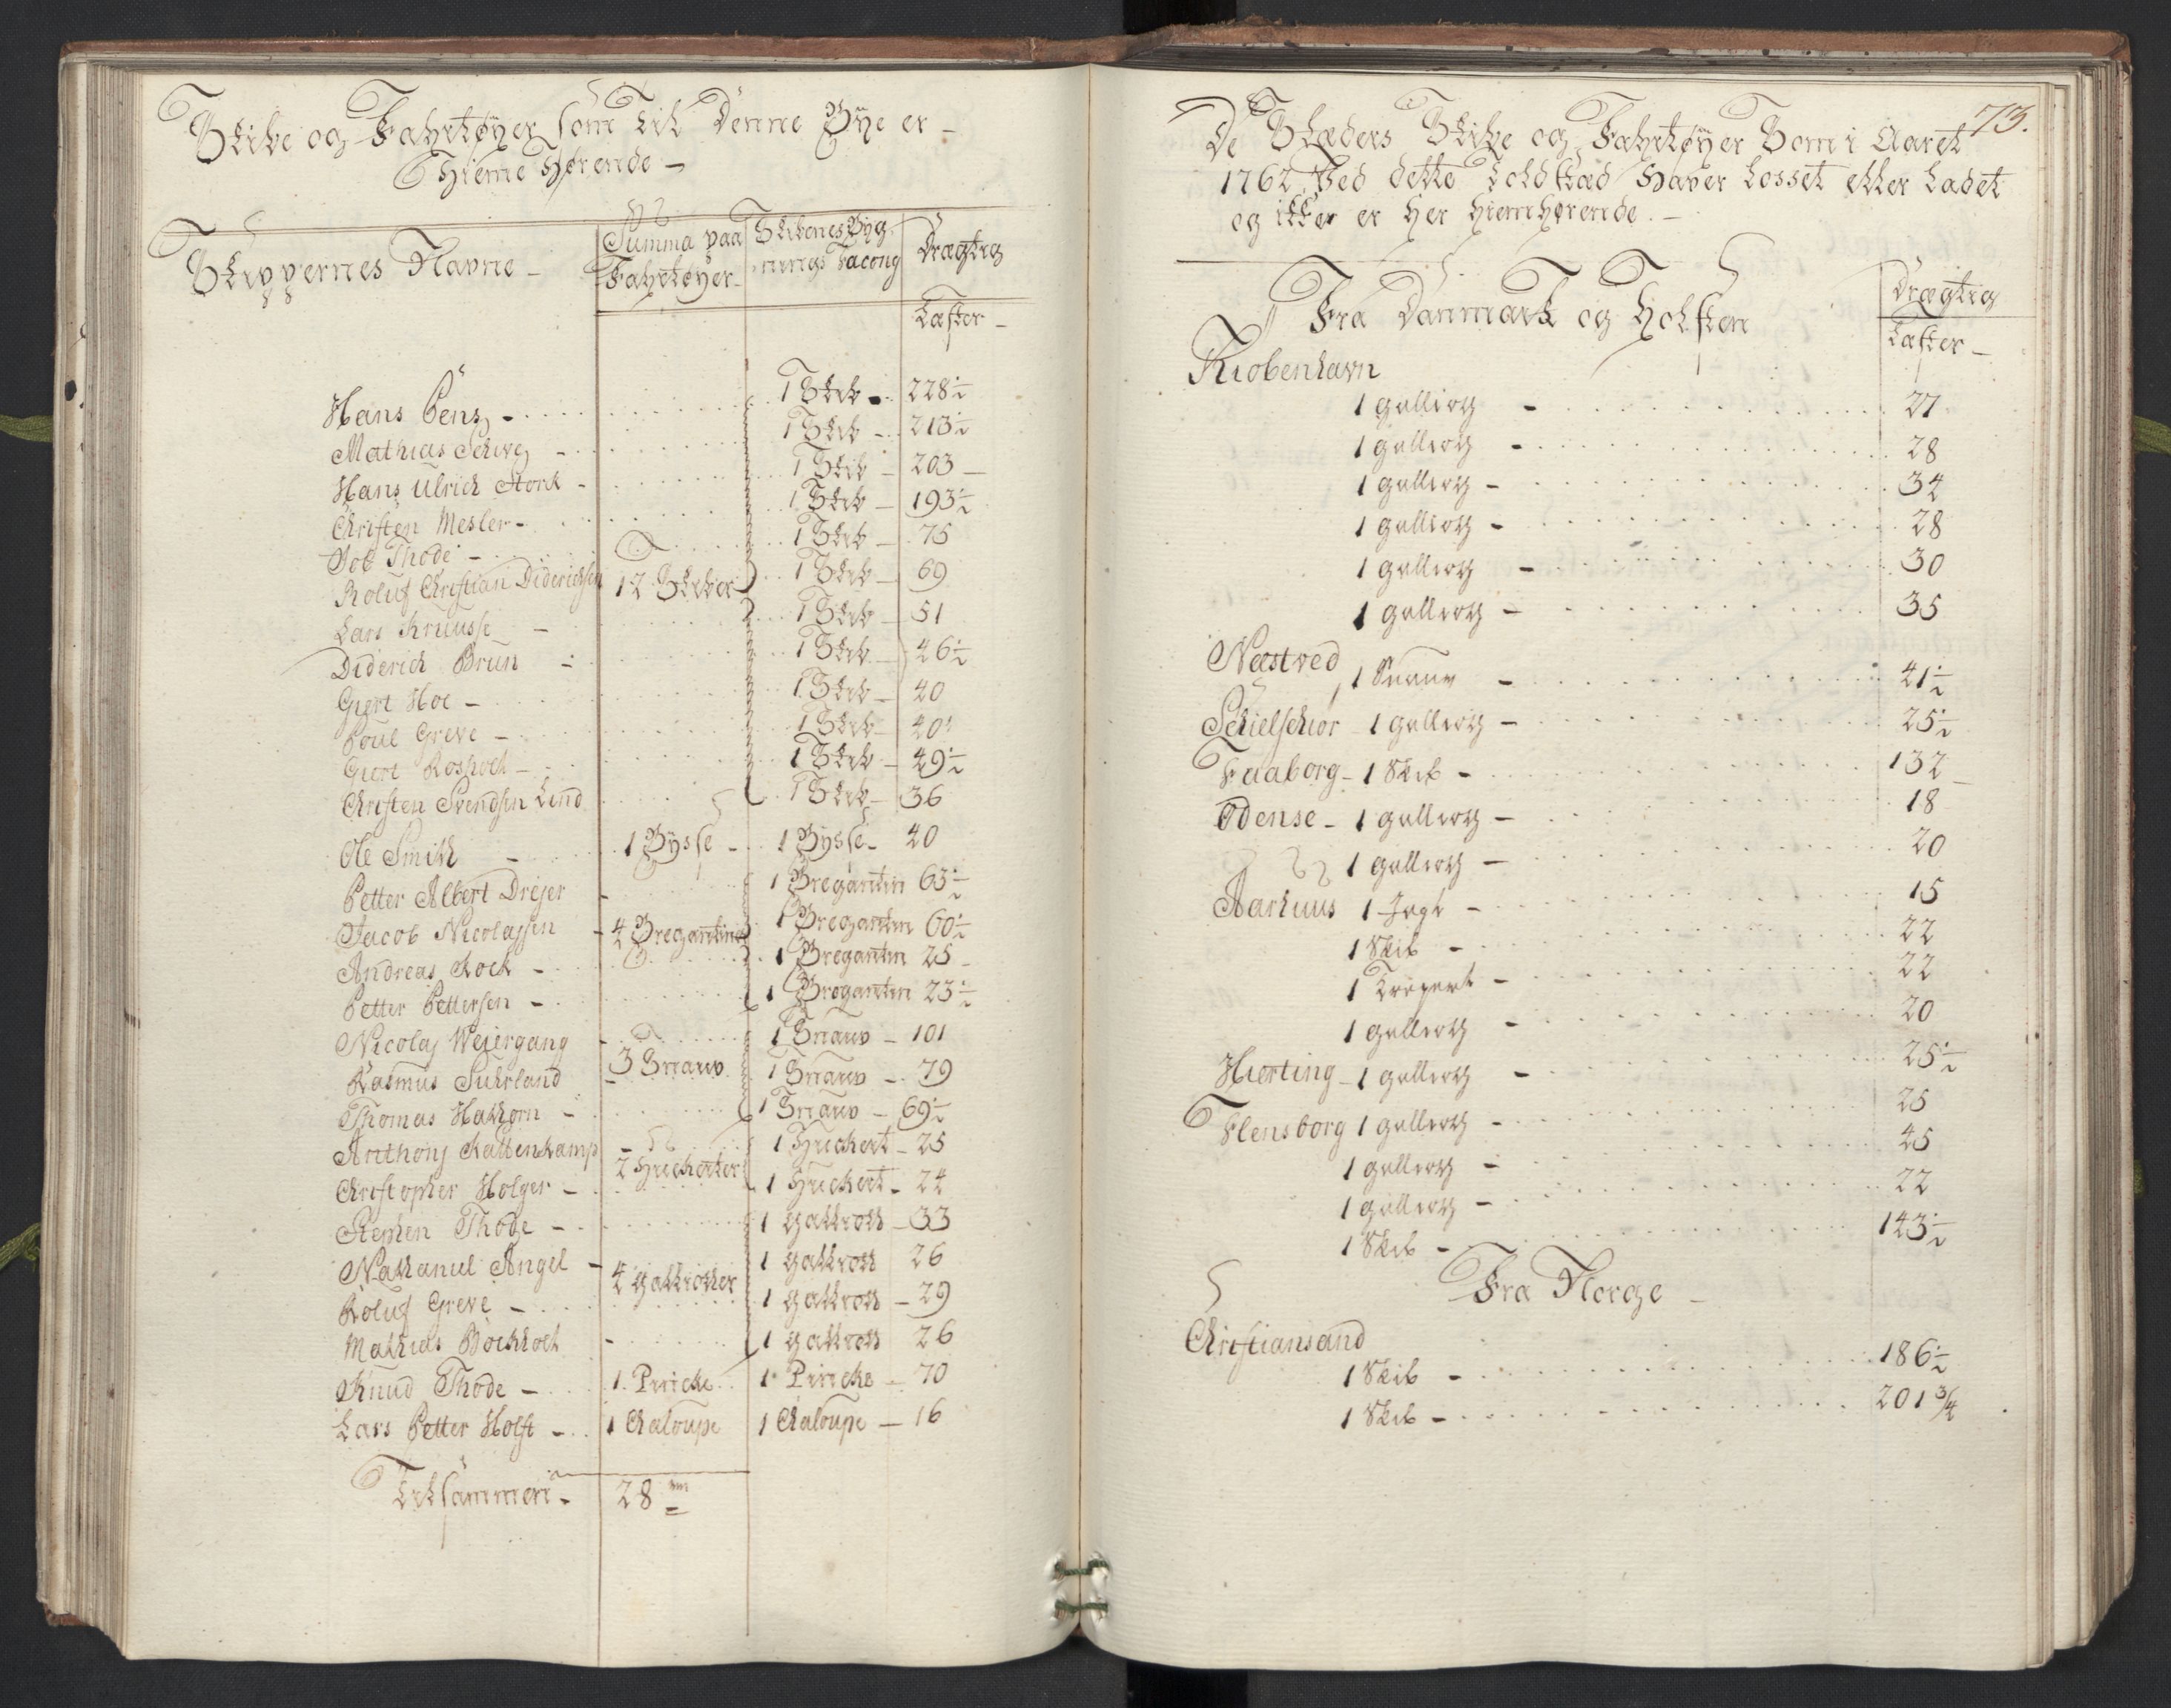 Skibe og Fahrtøyer som til Denne Bye er
Hieme Hørende
Skippernes Navne
Summa paa Fahrtøyer
Skibenes Byg-
nings Facong
Drægtig
Læster
Hans Bens 1 Skib 228½
Mathias Schive 1 Skib 213½
Hans Ulrich Stork 1 Skib 203
Christen Mesler 1 Skib 193½
Job Thode 1 Skib 75
Roluf Christian Diderichsen 12 Skiber 1 Skib 69
Lars Kruusse 1 Skib 51
Diderich Brun 1 Skib 46½
Giert Hoe 1 Skib 40
Poul Greve 1 Skib 40
Giert Rossvoch 1 Skib 49½
Christen Svendsen Lind 1 Skib 36
Ole Smith 1 Bysse 1 Bysse 40
Petter Albert Drejer 1 Bregantin 63½
Jacob Nicolajsen 4 Bregantiner 1 Bregantin 60½
Andreas Koch 1 Bregantin 25
Petter Pettersen 1 Bregantin 23½
Nicolaj Wejergang 1 Snauv 101
Rasmus Suhrland 3 Snauv 1 Snauv 79
Thomas Hakorn 1 Snauv 69½
Anthonj Kattenkamp 1 Huckert 25
Christopher Holger 2 Huckerter 1 Huckert 24
Stephen Thode 1 Gallioth 33
Nathaniel Angel 4 Galliother 1 Gallioth 26
Roluf Greve 1 Gallioth 29
Mathias Bockholt 1 Gallioth 26
Knud Thode 1 Pincke 1 Pincke 70
Lars Petter Holst 1 Chaloupe 1 Chaloupe 16
Tilsammen 28
73.
De Stæders Skibe og Fahrtøyer Som i Aaret
1762 Ved dette Toldstæd Haver Losset eller Ladet
og ikke er Her Hiemhørende.
Fra Danmark og Holsten
Drægtig
Læster
Kiobenhavn
1 Gallioth 27
1 Gallioth 28
1 Gallioth 34
1 Gallioth 28
1 Gallioth 30
1 Gallioth 35
Nestved 1 Snauv 41½
Schielschiør 1 Gallioth 25½
Faaborg 1 Skib 132
Odense 1 Gallioth 18
1 Gallioth 20
Aarhuus 1 Jagt 15
1 Skib 22
1 Krejert 22
1 Gallioth 20
Hierting 1 Gallioth 25½
Flensborg 1 Gallioth 25
1 Gallioth 45
1 Gallioth 22
1 Skib 143½
Fra Norge
Christiansand
1 Skib 186½
1 Skib 201¾